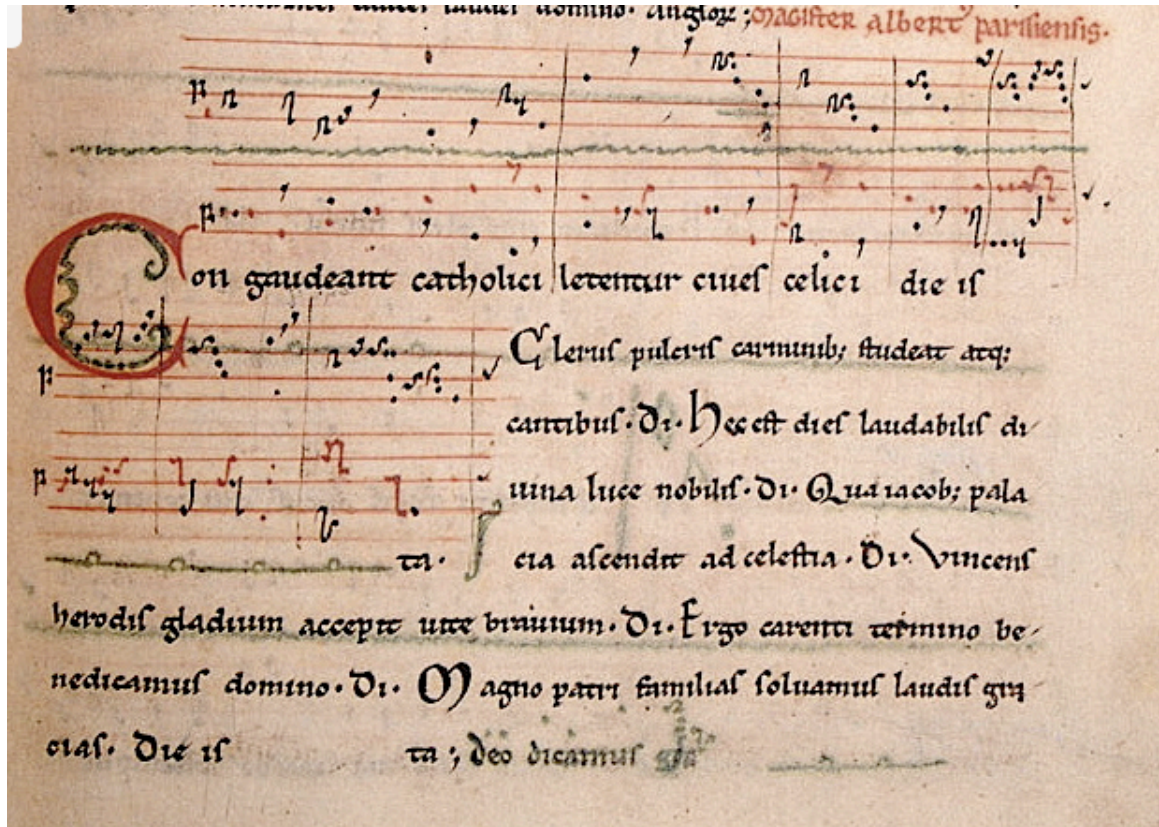 laudes domino. Anglorꝝ; Magister albert⁹ parisiensis.
Congaudeant catholici letentur ciues celici die is
Clerus pulcris carminib; studeat atq;
cantibus. Di. Hec est dies laudabilis di
uina luce nobilis. Di. Qua iacob; pala
ta. cia ascendit ad celestia. Di. Vincens
herodis gladium accepit uite brauium. Di. Ergo carenti termino be
nedicamus domino. Di. Magno patri familias soluamus laudis gra
cias. Die is ta; deo dicamus gra